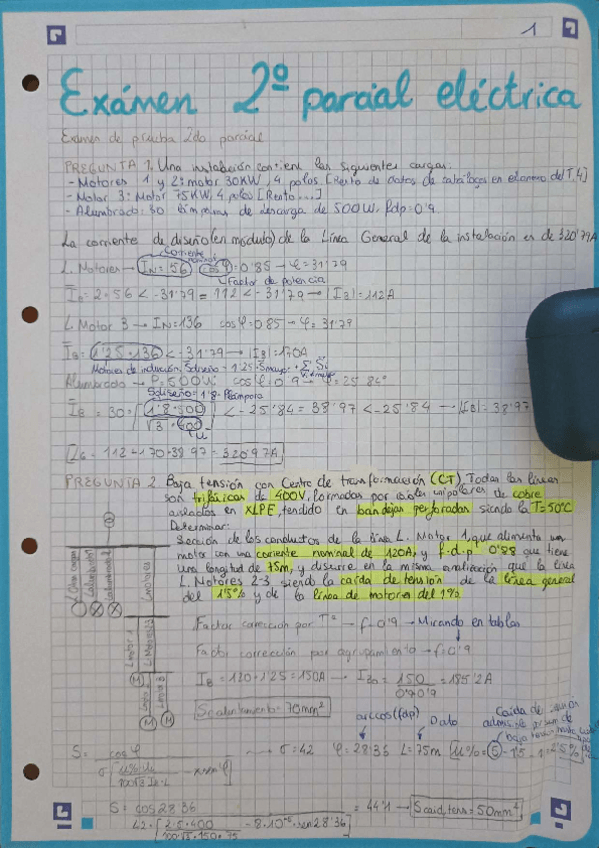 1
Exámen 2º parcial eléctrica
Examen de prueba 2do parcial
PREGUNTA 1. Una instalación contiene las siguientes cargas:
- Motores 1 y 2: motor 30KW, 4 polos [Rento de datos de catálogos en el anexo del T.4]
- Motor 3: Motor 75KW, 4 polos [Rento...]
- Alumbrado: 30 lámparas de descarga de 500W, fdp=0'9
La corriente de diseño (en módulo) de la Línea General de la instalación es de 320'79A
corriente nominal
L. Motores → IN=56 cosφ=0'85 → φ=31'79
↳ Factor de potencia
IB=2·56 <-31'79 = 112 <-31'79 → |IB|=112A
L Motor 3 → IN=136 cosφ=0'85 → φ=31'79
IB=1'25·136 <-31'79 → |IB|=170A
Alumbrado → P=500W; cosφ=0'9 → φ=25'84º
Sdiseño=1'8·Plámpara
IB = 30·[1'8·500 / √3·400] <-25'84 = 38'97 <-25'84 → |IB|=38'97
ILG = 112+170+38'97 = 320'97A
PREGUNTA 2. Baja tensión con Centro de transformación (CT). Todas las líneas
son trifásicas de 400V, formadas por cables unipolares de cobre
aislados en XLPE, tendido en bandejas perforadas siendo la T=50ºC
Determinar:
Sección de los conductos de la línea L. Motor 1, que alimenta un
motor con una corriente nominal de 120A, y f.d.p 0'88 que tiene
una longitud de 75m, y discurre en la misma canalización que la línea
L. Motores 2-3 siendo la caída de tensión de la línea general
del 1'5% y de la línea de motores del 1%
L. Motores
L. Motor 1
Factor corrección por Tª → f=0'9 → Mirando en tablas
Factor corrección por agrupamiento → f=0'9
IB = 120·1'25=150A → 150 / 0'9·0'9 = 185'2A
Scalentamiento=70mm²
arccos(fdp) Dato
S = cosφ → σ=42 φ=28'36 L=75m [μ%=5-1'5-1=2'5%]
S = cos28'36 / 42·[2'5·400 / 100·√3·150·75 - 8·10⁻⁵·sen28'36] = 44'1 → Scaid.tens=50mm²